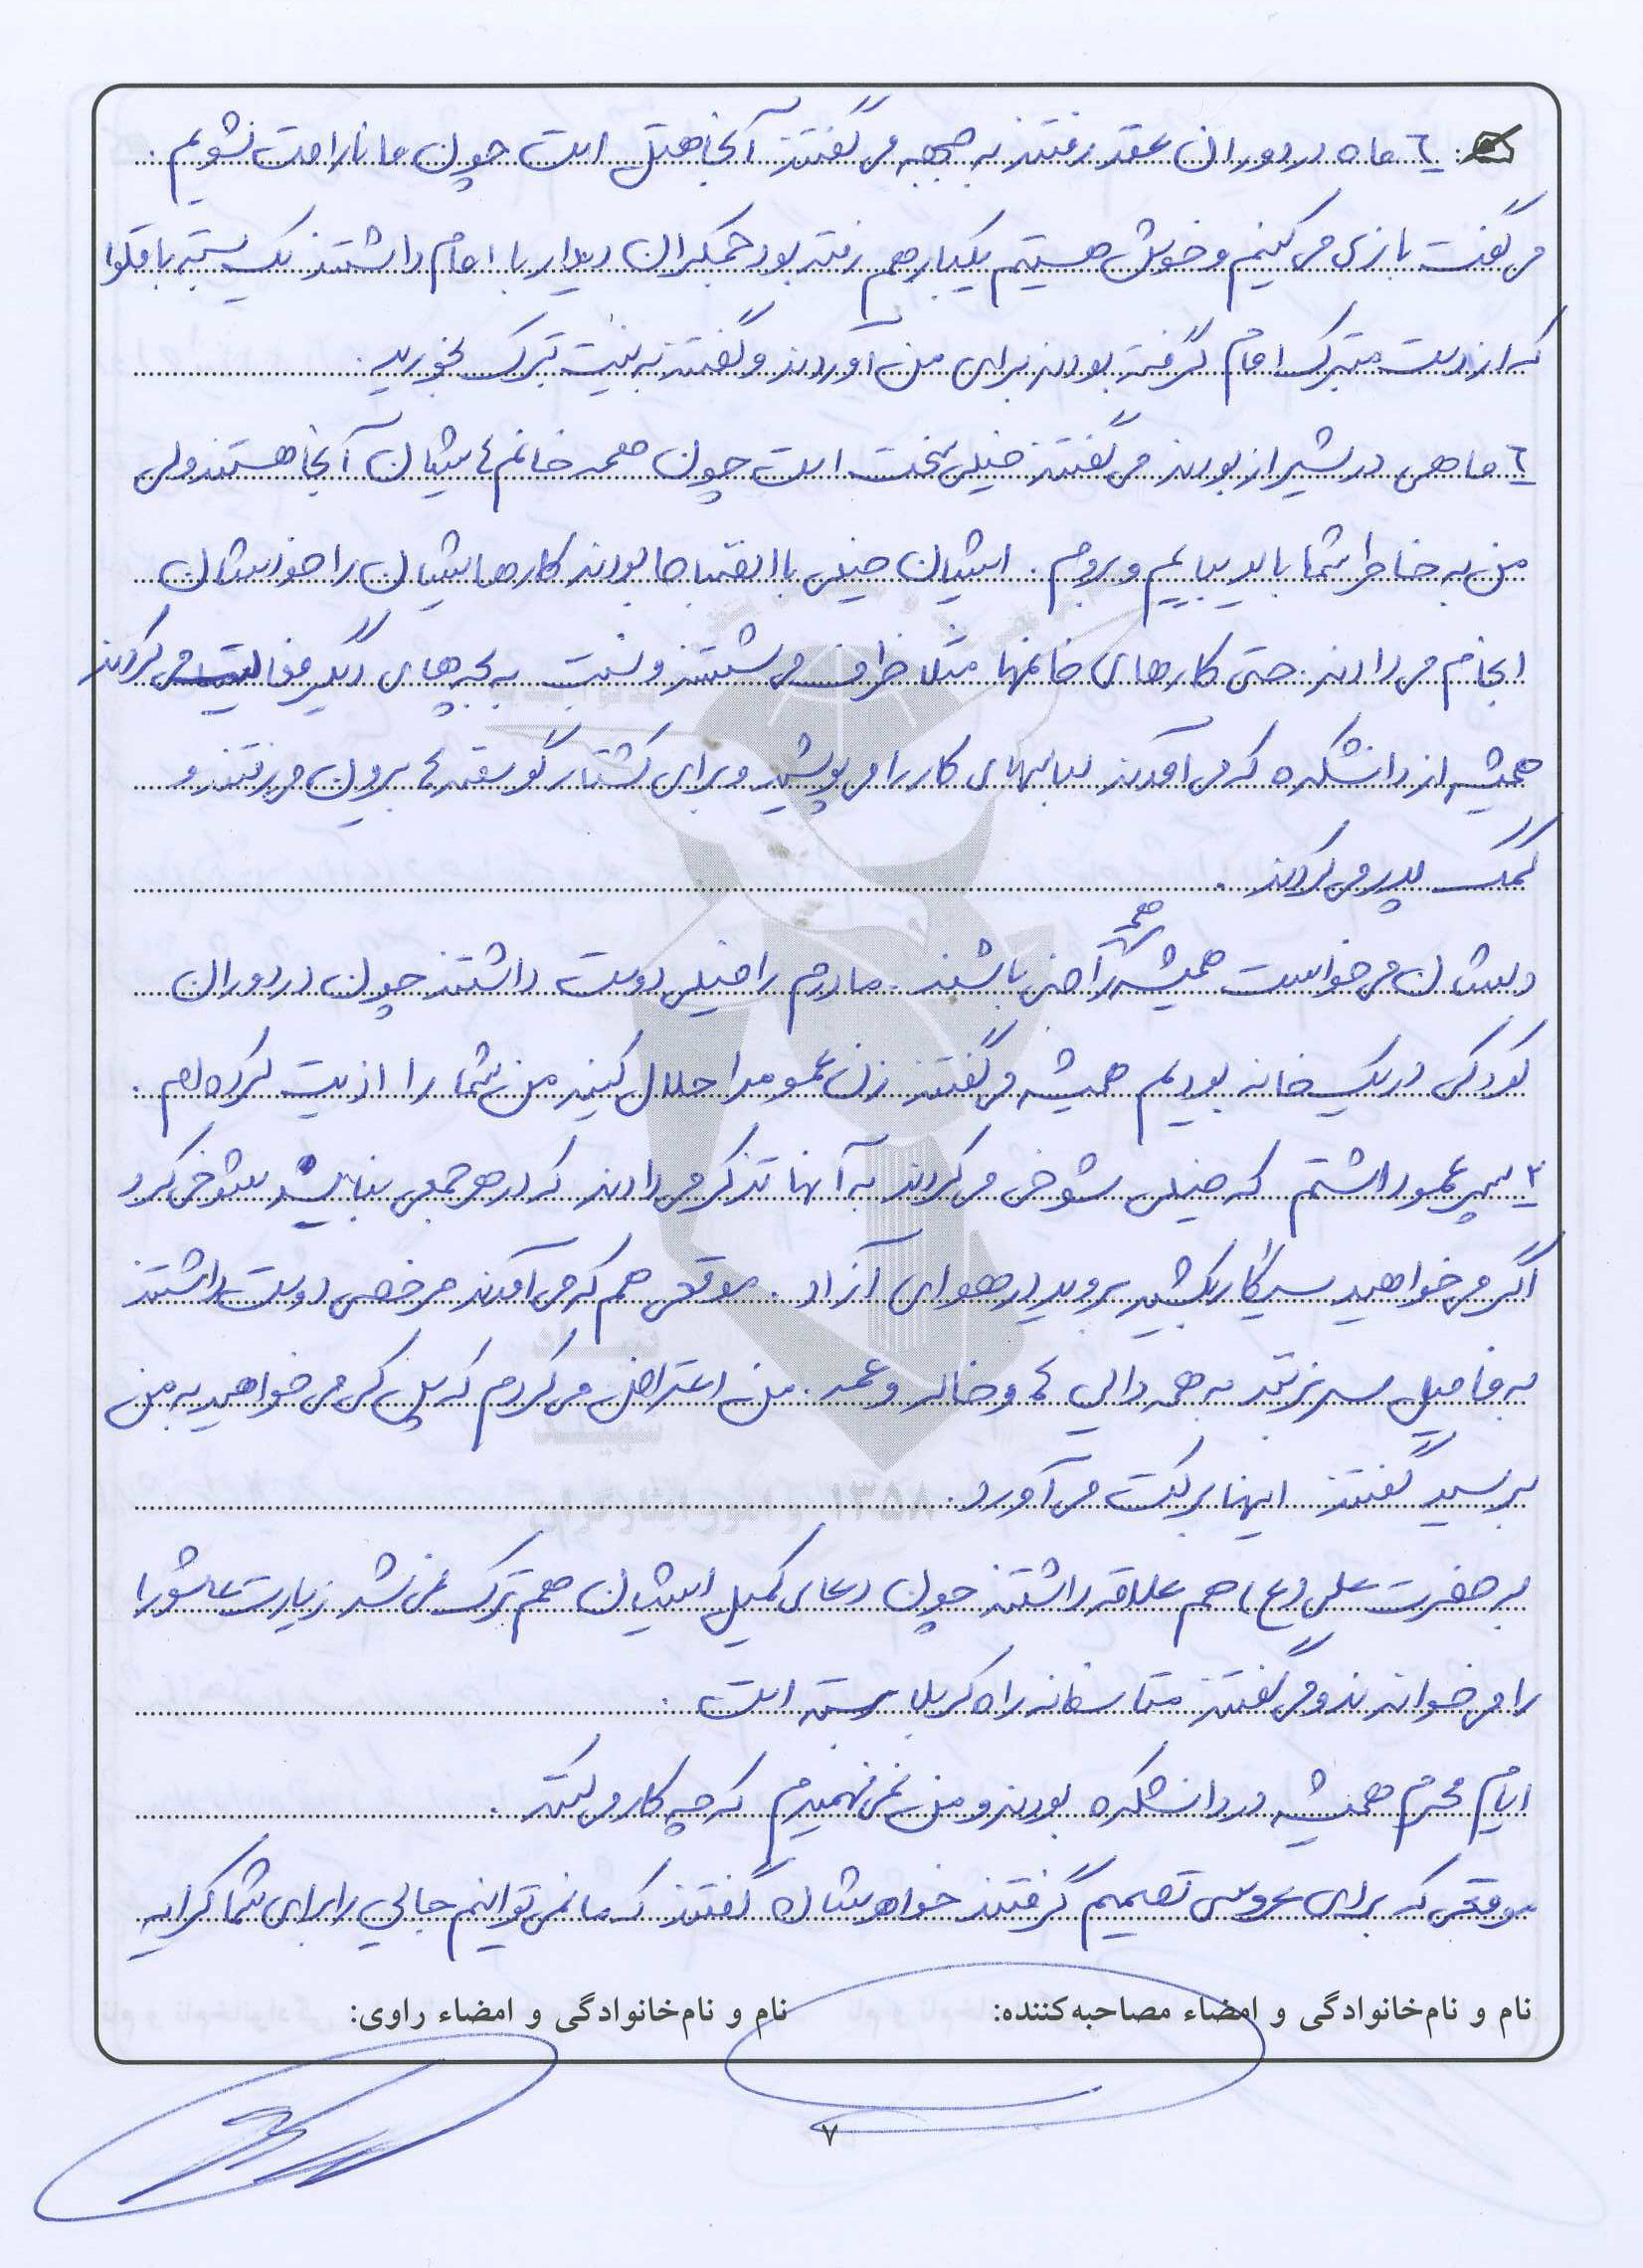 ٦ ماه در دوران عقد رفتند به جبهه می گفتند آنجا هتل است چون ما ناراحت نشویم.
می گفت بازی می کنیم و خوش هستیم یکبار هم رفته بود جمکران دیدار با امام داشتند یک بسته باقلوا
که از دست متبرک امام گرفته بودند برای من آوردند و گفتند به نیت تبرک بخورید.
٦ ماهی در شیراز بودند می گفتند خیلی سخت است چون همه خانم هایشان آنجا هستند ولی
من به خاطر شما باید بیایم و بروم. ایشان خیلی با انضباط بودند کارهایشان را خودشان
انجام می دادند حتی کارهای خانمها مثلا ظرف می شستند و نسبت به بچه های دیگر فعالیت می کردند
همیشه از دانشکده که می آمدند لباسهای کار را می پوشید و برای کشتار گوسفند ها بیرون می رفتند و
کمک پدر می کردند.
دلشان می خواست همیشه همه راضی باشند. مادرم را خیلی دوست داشتند چون در دوران
کودکی در یک خانه بودیم همیشه می گفتند زن عمو مرا حلال کنید من شما را اذیت کرده ام.
٢ پسر عمو داشتم که خیلی شوخی می کردند به آنها تذکر می دادند که در هر جمعی نباید شوخی کرد
اگر می خواهید سیگار بکشید بروید در هوای آزاد. موقعی هم که می آمدند مرخصی دوست داشتند
به فامیل سر بزنند به همه دایی ها و خاله و عمه. من اعتراض می کردم که پس کی می خواهید به من
برسید گفتند اینها برکت می آورد.
به حضرت علی (ع) هم علاقه داشتند چون دعای کمیل ایشان هم ترک نمی شد زیارت عاشورا
را می خواندند و می گفتند متأسفانه راه کربلا بسته است.
ایام محرم همیشه در دانشکده بودند و من نمی فهمیدم که چه کار می کنند.
موقعی که برای عروسی تصمیم گرفتند خواهرشان گفتند که ما نمی توانیم جایی را برای شما کرایه
نام و نام‌خانوادگی و امضاء مصاحبه‌کننده: نام و نام‌خانوادگی و امضاء راوی:
٧